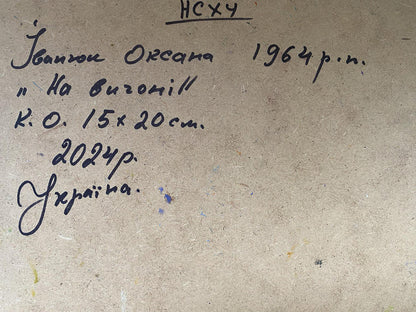 НСХУ
Іванюк Оксана 1964р.н.
„ На вигоні"
к.о. 15х20см.
2024р.
Україна.